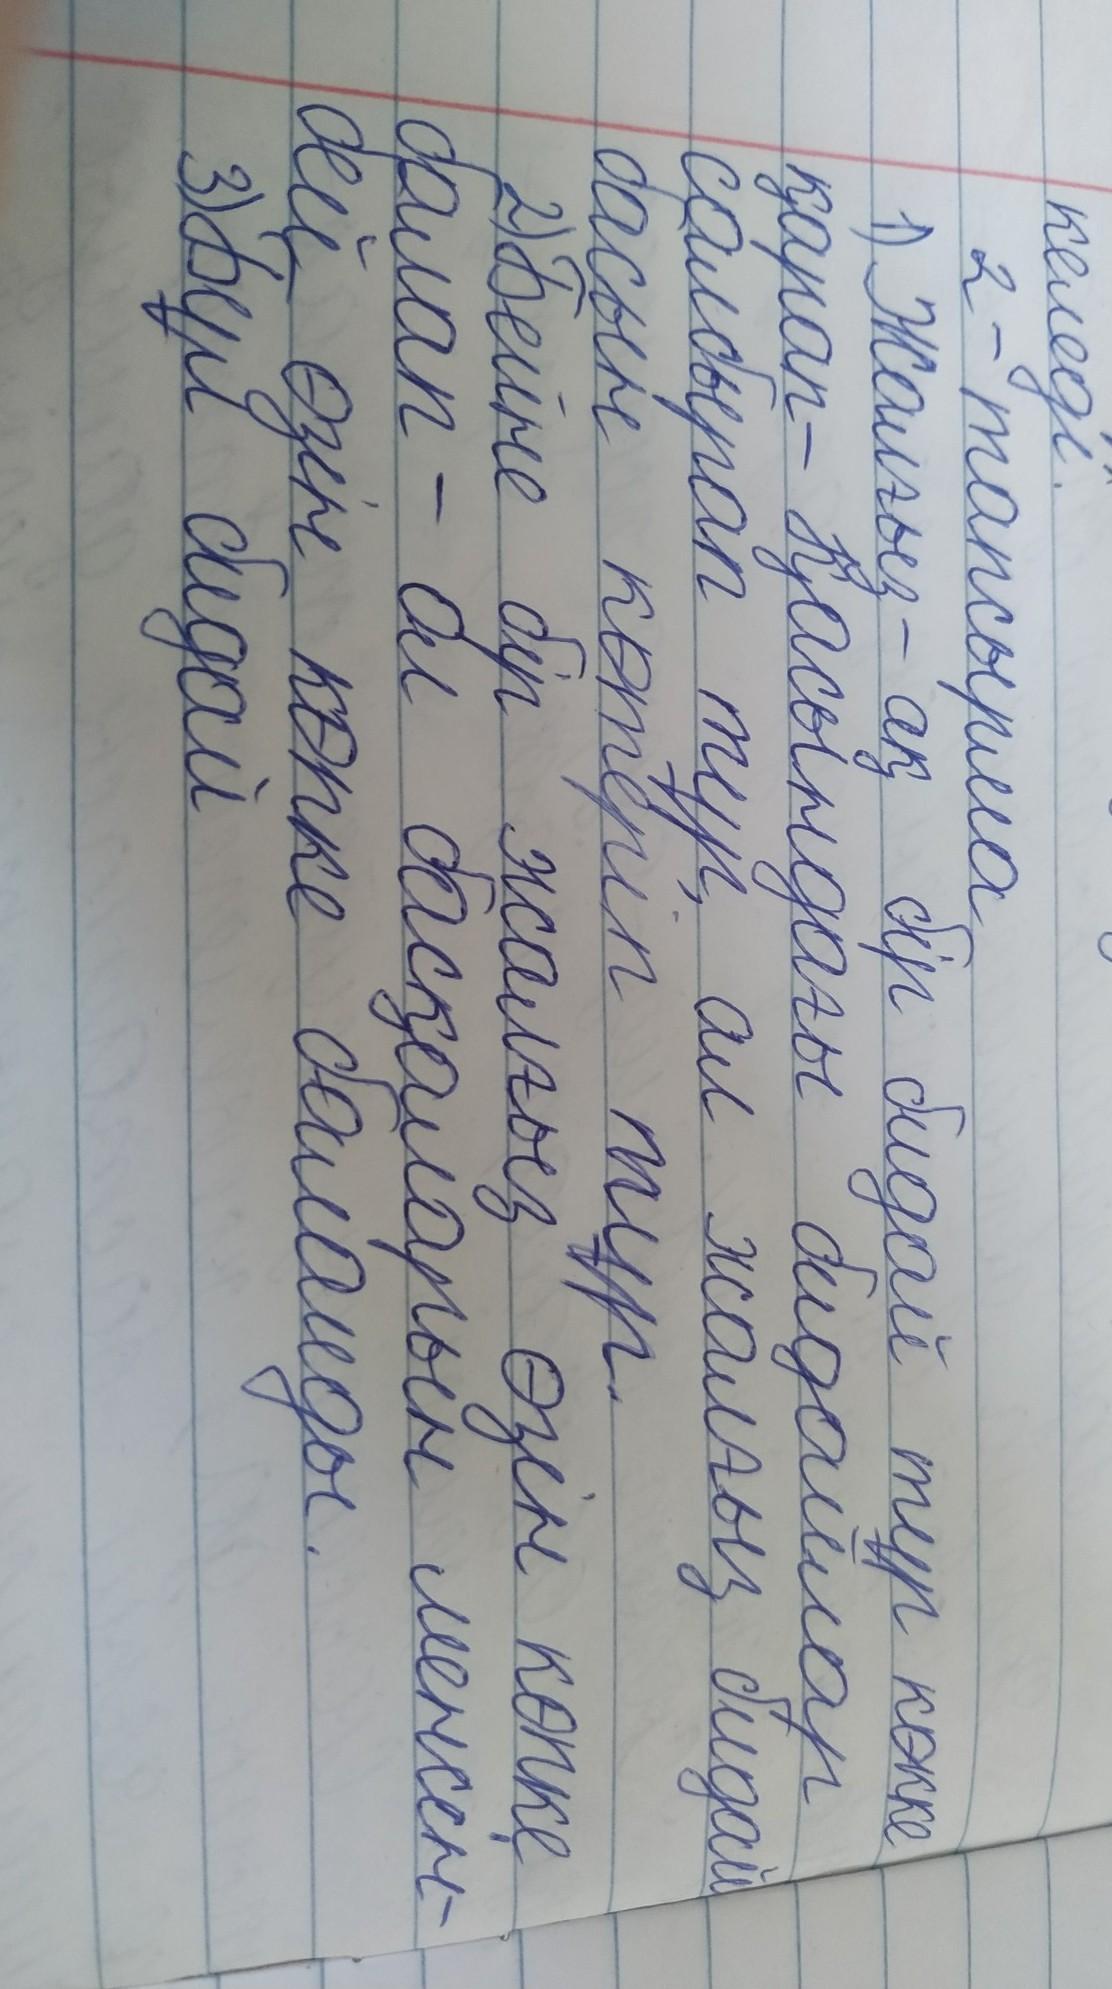 келеді.
2-тапсырма
1) Жалғыз-ақ бір бидай тұр көкке
қарап - Қасындағы бидайлар
салбырап тұр, ал жалғыз бидай
басын көтеріп тұр.
2) Бейне бір жалғыз өзін көпке
балап - Ол басқаларын менсін-
бей өзін көпке баламады.
3) Бұл бидай